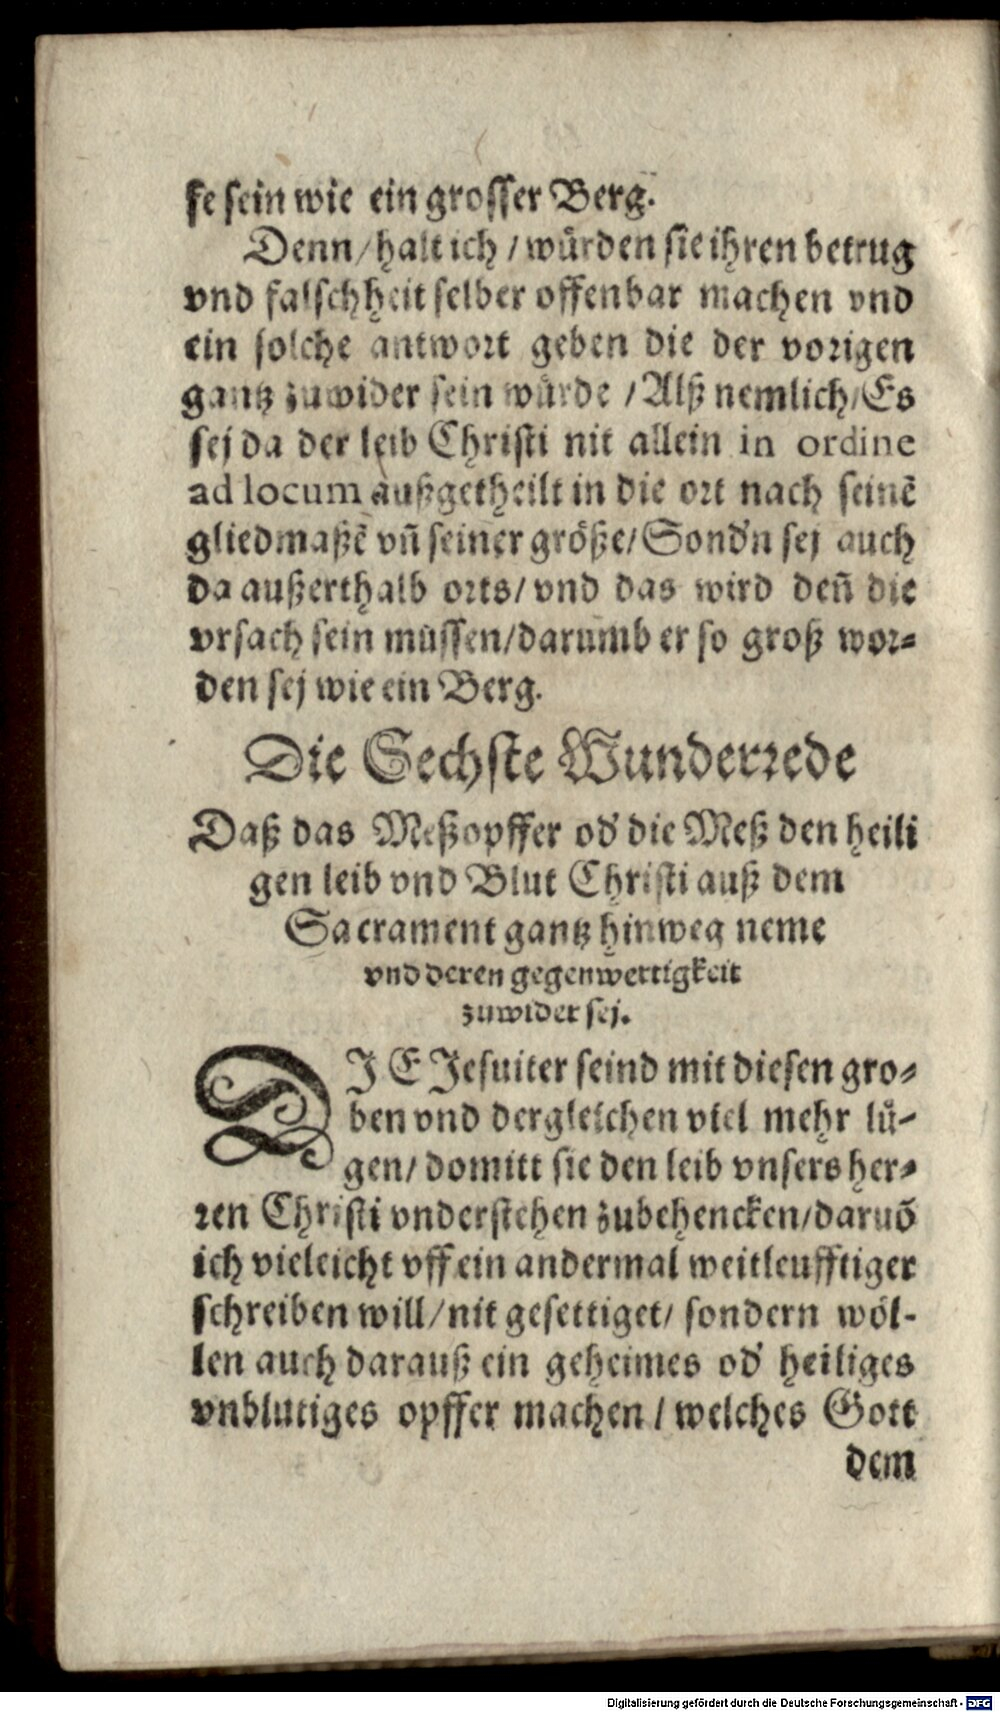 ke sein wie ein grosser Berg.
Denn/halt ich/würden sie ihren betrug
vnd falschheit selber offenbar machen vnd
ein solche antwort geben die der vorigen
gantz zuwider sein würde /Alß nemlich/Es
sej da der leib Christi nit allein in ordine
ad locum außgetheilt in die ort nach seinẽ
gliedmaßẽ vñ seiner größe/Sond'n sej auch
da außerthalb orts/vnd das wird deñ die
vrsach sein müssen/darumb er so groß wor-
den sej wie ein Berg.
Die Sechste Wunderrede
Daß das Meßopffer od' die Meß den heili
gen leib vnd Blut Christi auß dem
Sacrament gantz hinweg neme
vnd deren gegenwertigkeit
zuwider sej.
DIE Jesuiter seind mit diesen gro-
ben vnd dergleichen viel mehr lü-
gen/domitt sie den leib vnsers her-
ren Christi vnderstehen zubehencken/daruõ
ich vieleicht vff ein andermal weitleufftiger
schreiben will/nit gesettiget/sondern wöl-
len auch darauß ein geheimes od' heiliges
vnblutiges opffer machen/welches Gott
dem
Digitalisierung gefördert durch die Deutsche Forschungsgemeinschaft - DFG